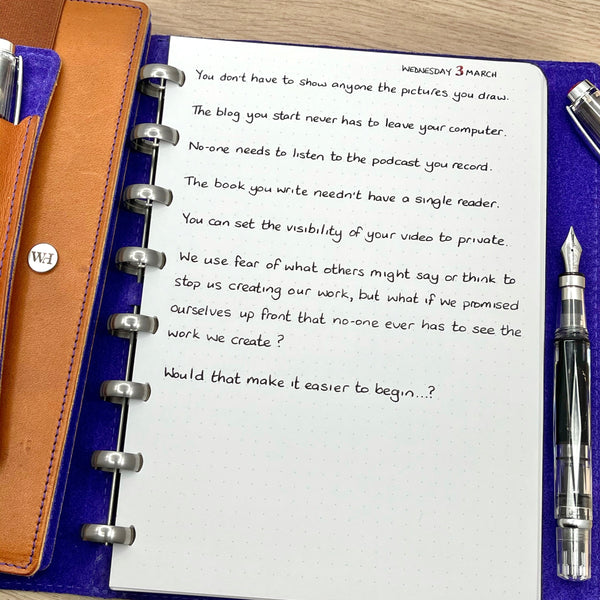 WEDNESDAY 3 MARCH
You don't have to show anyone the pictures you draw.
The blog you start never has to leave your computer.
No-one needs to listen to the podcast you record.
The book you write needn't have a single reader.
You can set the visibility of your video to private.
We use fear of what others might say or think to
stop us creating our work, but what if we promised
ourselves up front that no-one ever has to see the
work we create?
Would that make it easier to begin...?
WH